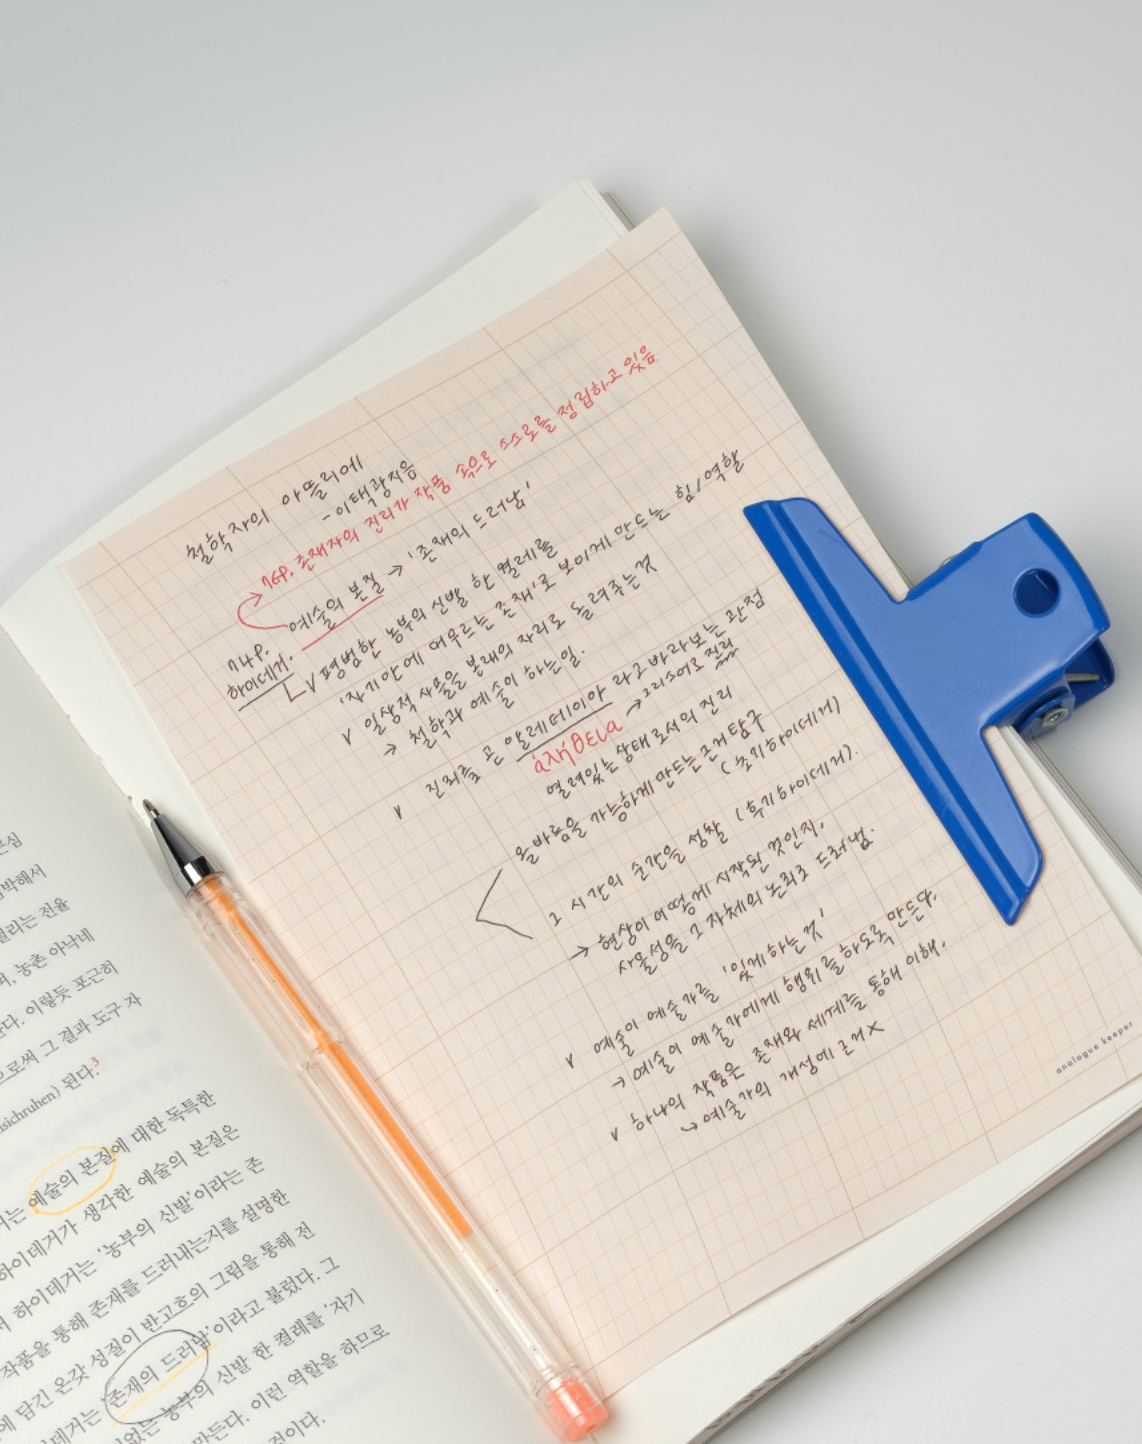 철학자의 아뜰리에
- 이택광지음
76p. 존재자의 진리가 작품 속으로 스스로를 정립하고 있음
74p.
하이데거.
예술의 본질 → '존재의 드러남'
∨ 평범한 농부의 신발 한 켤레를
'자기안에 머무르는 존재'로 보이게 만드는 힘/역할
∨ 일상적 사물을 본래의 자리로 돌려주는것
→ 철학과 예술이 하는일.
∨ 진리를 곧 알레테이아 라고 바라보는 관점
ἀλήθεια → 그리스어로 진리
열려있는 상태로서의 진리
올바름을 가능하게 만드는 근거 탐구
(초기하이데거)
그 시간의 순간을 성찰 (후기하이데거).
→ 현상이 어떻게 시작된 것인지,
사물성을 그 자체의 논리로 드러냄.
∨ 예술이 예술가를 '있게하는 것'
→ 예술이 예술가에게 행위를 하도록 만든다.
∨ 하나의 작품은 존재와 세계를 통해 이해.
↳ 예술가의 개성에 근거 X
analogue keeper
박해서
리는 전율
농촌 아낙네
다. 이렇듯 포근히
으로써 그 결과 도구 자
nsichruhen) 된다.3
는 예술의 본질에 대한 독특한
하이데거가 생각한 예술의 본질은
하이데거는 '농부의 신발'이라는 존
작품을 통해 존재를 드러내는지를 설명한
에 담긴 온갖 성질이 반고흐의 그림을 통해 전
데거는 '존재의 드러남'이라고 불렀다. 그
없는 농부의 신발 한 켤레를 '자기
만든다. 이런 역할을 하므로
것이다.